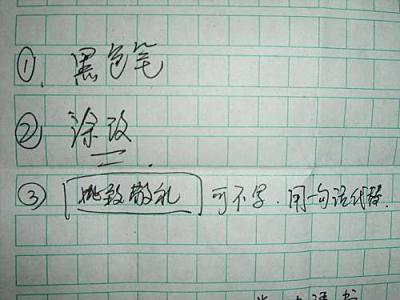 ① 黑色笔
② 涂改.
③ 此致敬礼 可不写. 用一句话代替.